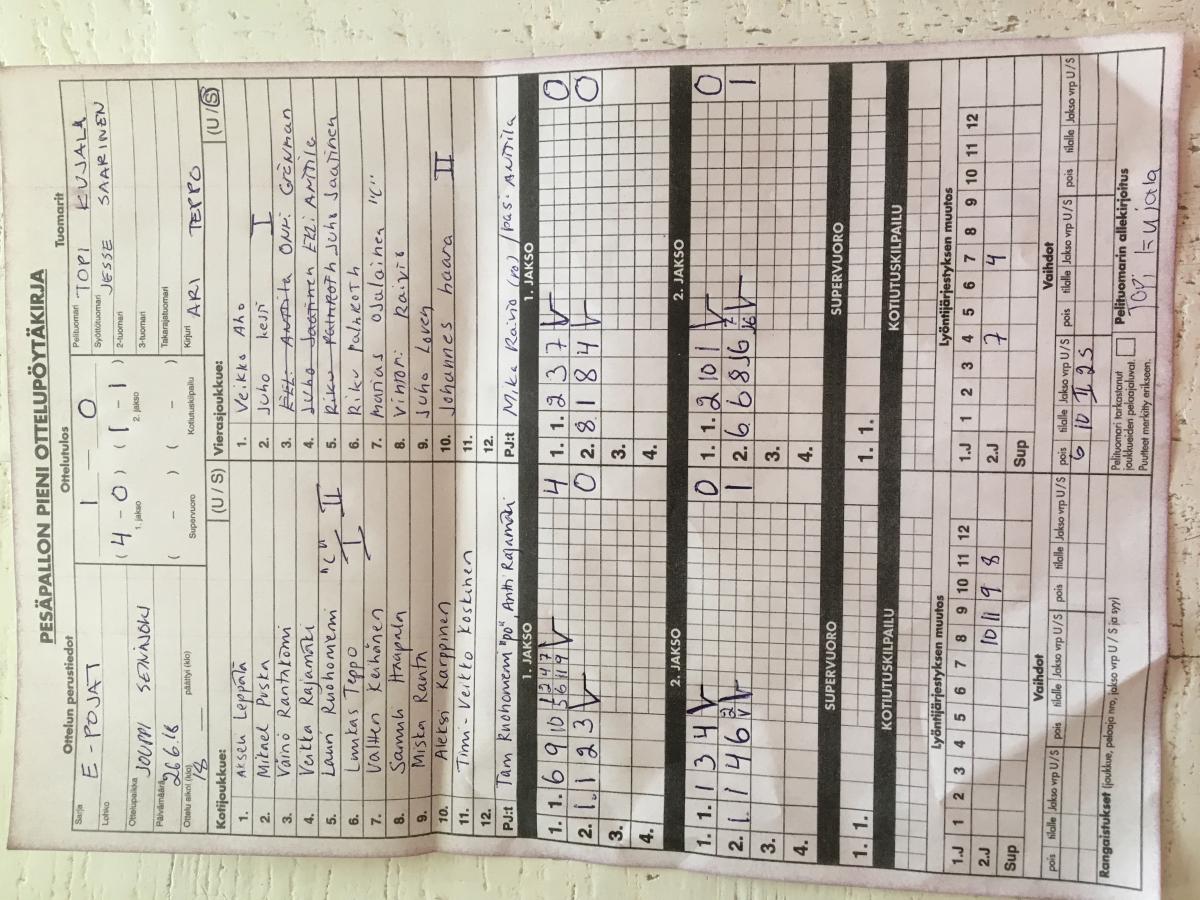 PESÄPALLON PIENI OTTELUPÖYTÄKIRJA
Ottelun perustiedot
Sarja E-POJAT
Lohko
Ottelupaikka JOUPPI SEINÄJOKI
Päivämäärä 26.6.18
Ottelu alkoi (klo) 18 päättyi (klo)
Ottelutulos
1 – 0
( 4 – 0 ) ( 1 – 1 )
1. jakso 2. jakso
( – ) ( – )
Supervuoro Kotiutuskilpailu
Tuomarit
Pelituomari TOPI KUJALA
Syöttötuomari JESSE SAARINEN
2-tuomari
3-tuomari
Takarajatuomari
Kirjuri ARI TEPPO
Kotijoukkue: (U / S)
1. Akseli Leppälä
2. Mikael Puska
3. Väinö Rantakömi
4. Veikka Rajamäki
5. Lauri Ruohoniemi "C" II
6. Luukas Teppo I
7. Valtteri Keihänen
8. Samuli Haapala
9. Miska Ranta
10. Aleksi Karppinen
11. Timi-Veikko Koskinen
12.
PJ:t Ruohoniemi "po", Antti Rajamäki
Vierasjoukkue: (U / S)
1. Veikko Aho
2. Juho I
3. Onni Grönman
4. Juho Eeli Anttila
5. Juho Saarinen
6. Riku
7. Marius "C"
8. Raivio
9. Juho Loven
10. Johannes haara II
11.
12.
PJ:t Mika Raivio / pasi Anttila
1. JAKSO 1. JAKSO
1. 1. 6 9 10 1 2 4 7 5 6 11 9 V 4
2. 1. 1 2 3 V 0
3.
4.
1. 1. 2 3 7 V 0
2. 8. 1 8 4 V 0
3.
4.
2. JAKSO 2. JAKSO
1. 1. 1 3 4 V 0
2. 1. 1 4 6 V 1
3.
4.
1. 1. 2 10 1 V 0
2. 6. 6 8 V 1
3.
4.
SUPERVUORO SUPERVUORO
1. 1.
1. 1.
KOTIUTUSKILPAILU KOTIUTUSKILPAILU
Lyöntijärjestyksen muutos
1.J 1 2 3 4 5 6 7 8 9 10 11 12
2.J 10 11 9 8
Sup
Lyöntijärjestyksen muutos
1.J 1 2 3 4 5 6 7 8 9 10 11 12
2.J 7 4
Sup
Vaihdot
pois tilalle Jakso vrp U/S pois tilalle Jakso vrp U/S pois tilalle Jakso vrp U/S
Vaihdot
pois tilalle Jakso vrp U/S pois tilalle Jakso vrp U/S pois tilalle Jakso vrp U/S
6 10 II 2S
Rangaistukset (joukkue, pelaaja nro, jakso vrp U / S ja syy)
Pelituomari tarkastanut
joukkueiden pelaajaluvat.
Puutteet merkitty erikseen.
Pelituomarin allekirjoitus
Topi Kujala